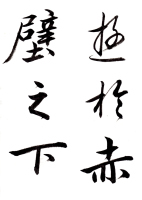 遊於赤
壁之下